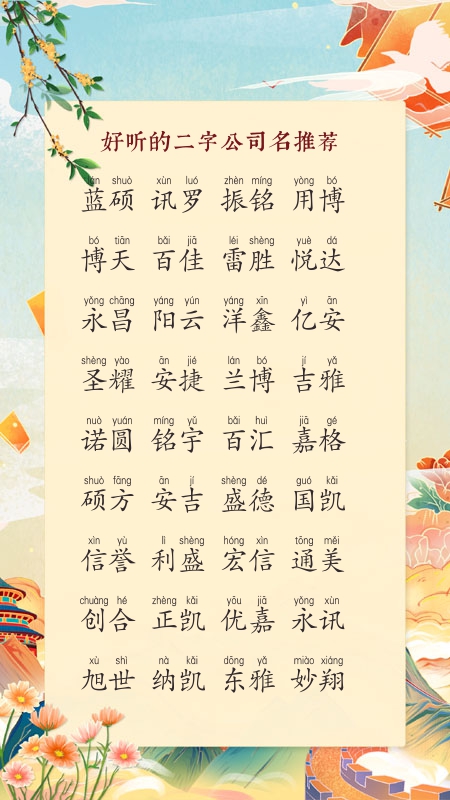 好听的二字公司名推荐
lán shuò xùn luó zhèn míng yòng bó
蓝硕 讯罗 振铭 用博
bó tiān bǎi jiā léi shèng yuè dá
博天 百佳 雷胜 悦达
yǒng chāng yáng yún yáng xīn yì ān
永昌 阳云 洋鑫 亿安
shèng yào ān jié lán bó jí yǎ
圣耀 安捷 兰博 吉雅
nuò yuán míng yǔ bǎi huì jiā gé
诺圆 铭宇 百汇 嘉格
shuò fāng ān jí shèng dé guó kǎi
硕方 安吉 盛德 国凯
xìn yù lì shèng hóng xìn tōng měi
信誉 利盛 宏信 通美
chuàng hé zhèng kǎi yōu jiā yǒng xùn
创合 正凯 优嘉 永讯
xù shì nà kǎi dōng yǎ miào xiáng
旭世 纳凯 东雅 妙翔